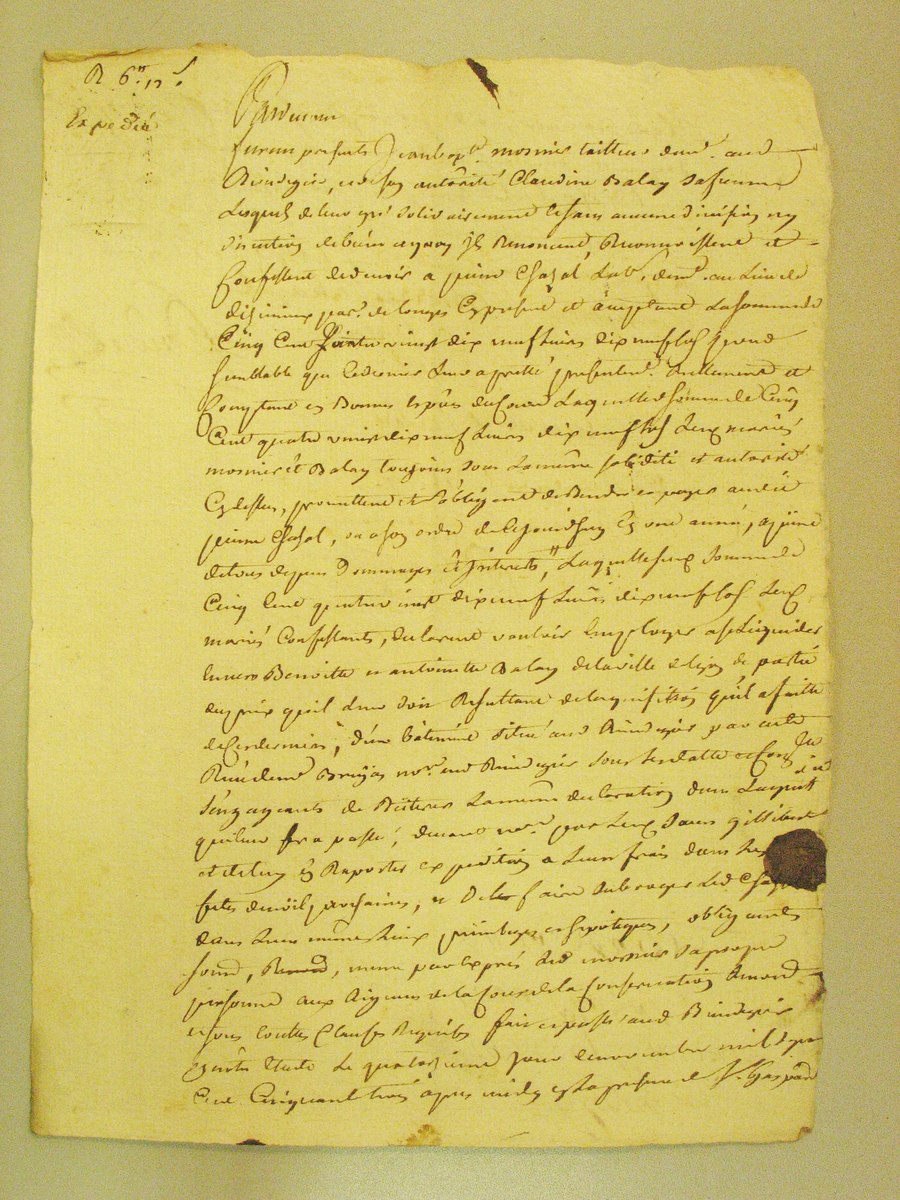 R 6
Expedié
Pardevant
furent presents Jean bapte. mosnier tailleur demt. aud
Rivedegier, et de son autorité Claudine Balay sa femme
Lesquels de leur gré solidairement et sans aucune division ny
discution de biens a quoy ils Renoncent, Reconnoissent et
Confessent devoir a pierre Chazol Labr. demt. au Lieu de
parr. de Longes Cy present et acceptant La somme de
Cinq Cent quatre vingt dix neuf Livres dix neuf sols pour
semblable que ce dernier Leur a pretté presentemt. Reellement et
Comptant en Bonnes Espèces de Cours Laquelle de somme de Cinq
Cent quatre vingt dix neuf Livres dix neuf sols Leux mariés
mosnier et Balay toujours sous La même solidité et autorité
Cy dessus, promettent et s'obligent de Rendre et payer audit
pierre Chazol, ou a son ordre de Cejourd'huy En une année, a peine
de tous depens Dommages et Interests, Laquelle somme de
Cinq Cent quatre vingt dix neuf Livres dix neuf sols Leux
mariés Confessants, declarent vouloir Employer a se Liquider
Envers Benoitte et antoinette Balay de la ville de Lyon de partie
du prix qu'il Leur doit Resultant de l'acquisition qu'il a faitte
de Ces dernieres, d'un bâtiment situé aud Rivedegier par acte
Receu demt. nore. aud Rivedegier sous sa datte et Con
s'engageants de Reiterer La même declaration dans La quitt
qui leur sera passée, devant nore. par Leux Dames
et de luy En Raporter expedition a Leurs frais dans Les
fetes de noël prochaines, et de faire subroger Led Chazol
dans Leurs mêmes Lieux privileges et hipoteques, obligeants
soumt, Renonct, meme par Exprés Led mosnier sa propre
personne aux Rigueurs de la Cour de la Conservation de
et sous touttes Clauses Requises fait et passé aud Rivedegier
Etude Le quatorzieme jour de novembre mil sept
Cent Cinquante trois après midy En la presence de Sr. Gaspard